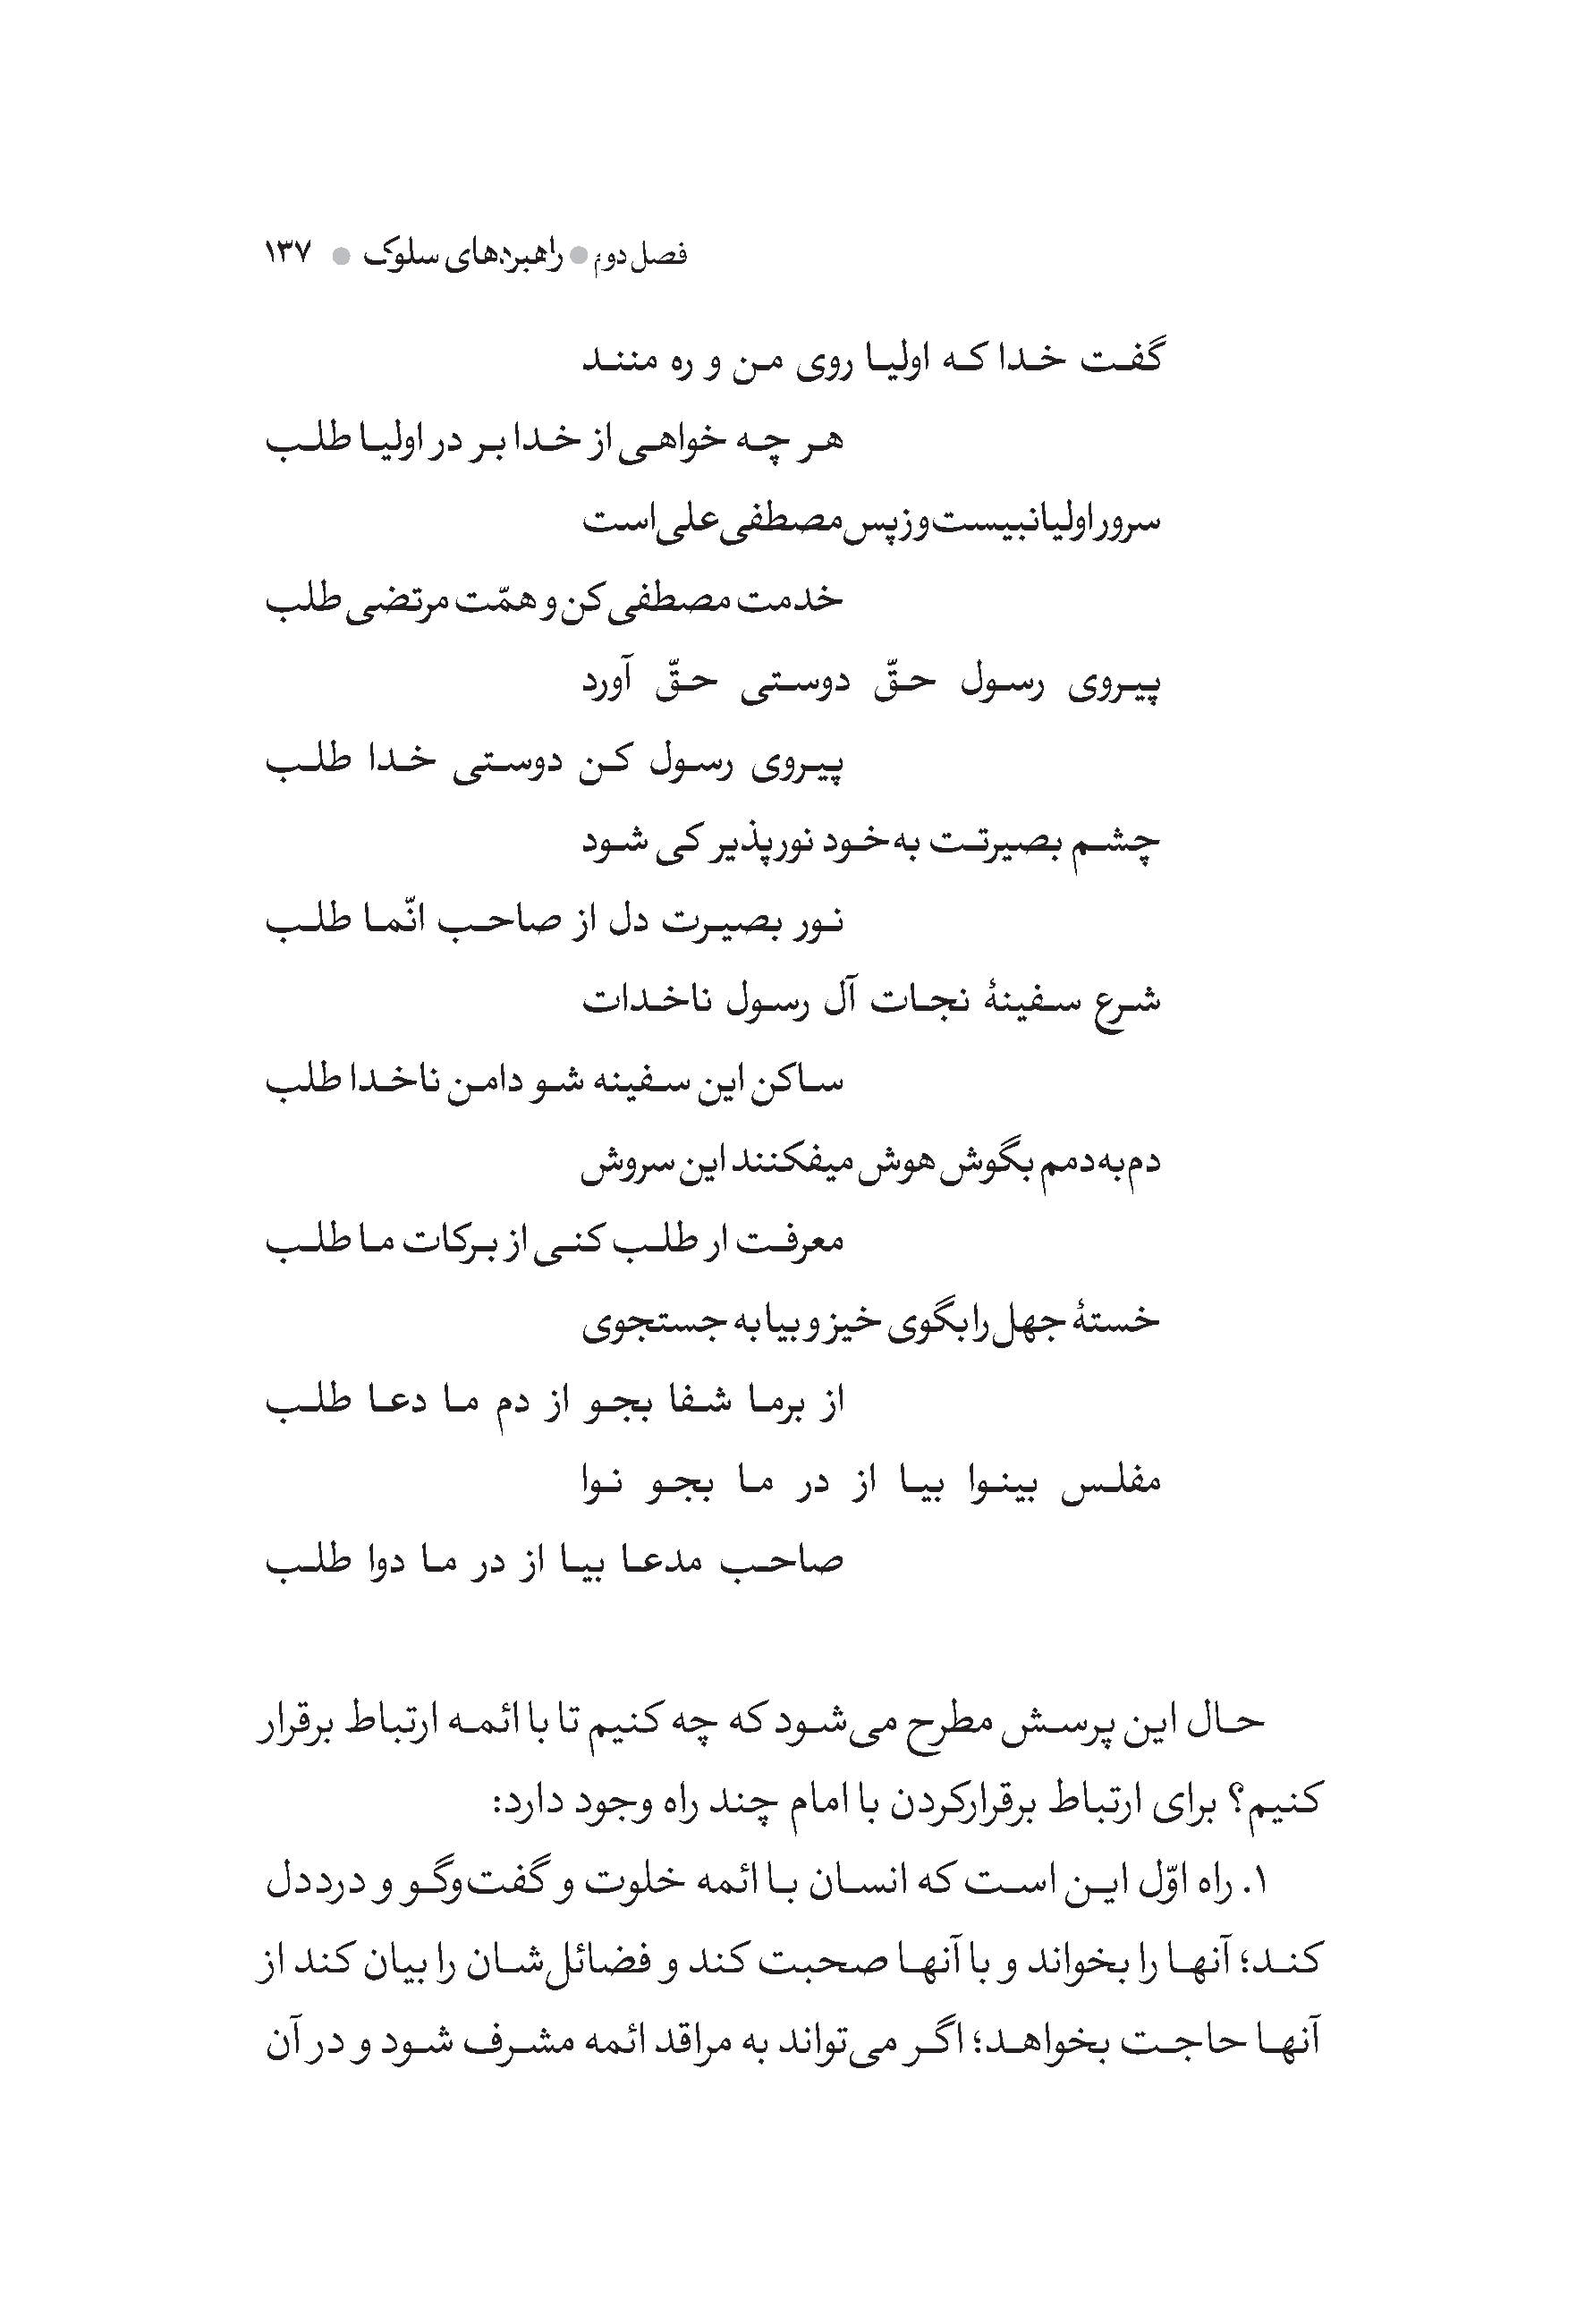 فصل دوم ● راهبردهای سلوک ● ۱۳۷
گفت خدا که اولیا روی من و ره منند
هر چه خواهی از خدا بر در اولیا طلب
سرور اولیا نبیست و ز پس مصطفی علی است
خدمت مصطفی کن و همّت مرتضی طلب
پیروی رسول حقّ دوستی حقّ آورد
پیروی رسول کن دوستی خدا طلب
چشم بصیرتت به خود نورپذیر کی شود
نور بصیرت دل از صاحب انّما طلب
شرع سفینهٔ نجات آل رسول ناخدات
ساکن این سفینه شو دامن ناخدا طلب
دم به دمم بگوش هوش میفکنند این سروش
معرفت ار طلب کنی از برکات ما طلب
خستهٔ جهل را بگوی خیز و بیا به جستجوی
از برما شفا بجو از دم ما دعا طلب
مفلس بینوا بیا از در ما بجو نوا
صاحب مدعا بیا از در ما دوا طلب
حال این پرسش مطرح می‌شود که چه کنیم تا با ائمه ارتباط برقرار
کنیم؟ برای ارتباط برقرارکردن با امام چند راه وجود دارد:
۱. راه اوّل این است که انسان با ائمه خلوت و گفت‌وگو و درددل
کند؛ آنها را بخواند و با آنها صحبت کند و فضائل‌شان را بیان کند از
آنها حاجت بخواهد؛ اگر می‌تواند به مراقد ائمه مشرف شود و در آن